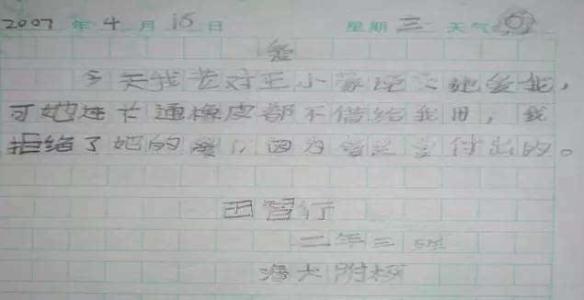 2007 年 4 月 15 日 星期 三 天气
爱
今天我对王小蒙说她爱我，
可她连卡通橡皮都不借给我用，我
拒绝了她的爱，因为爱是要付出的。
田行
二年三班
海大附校